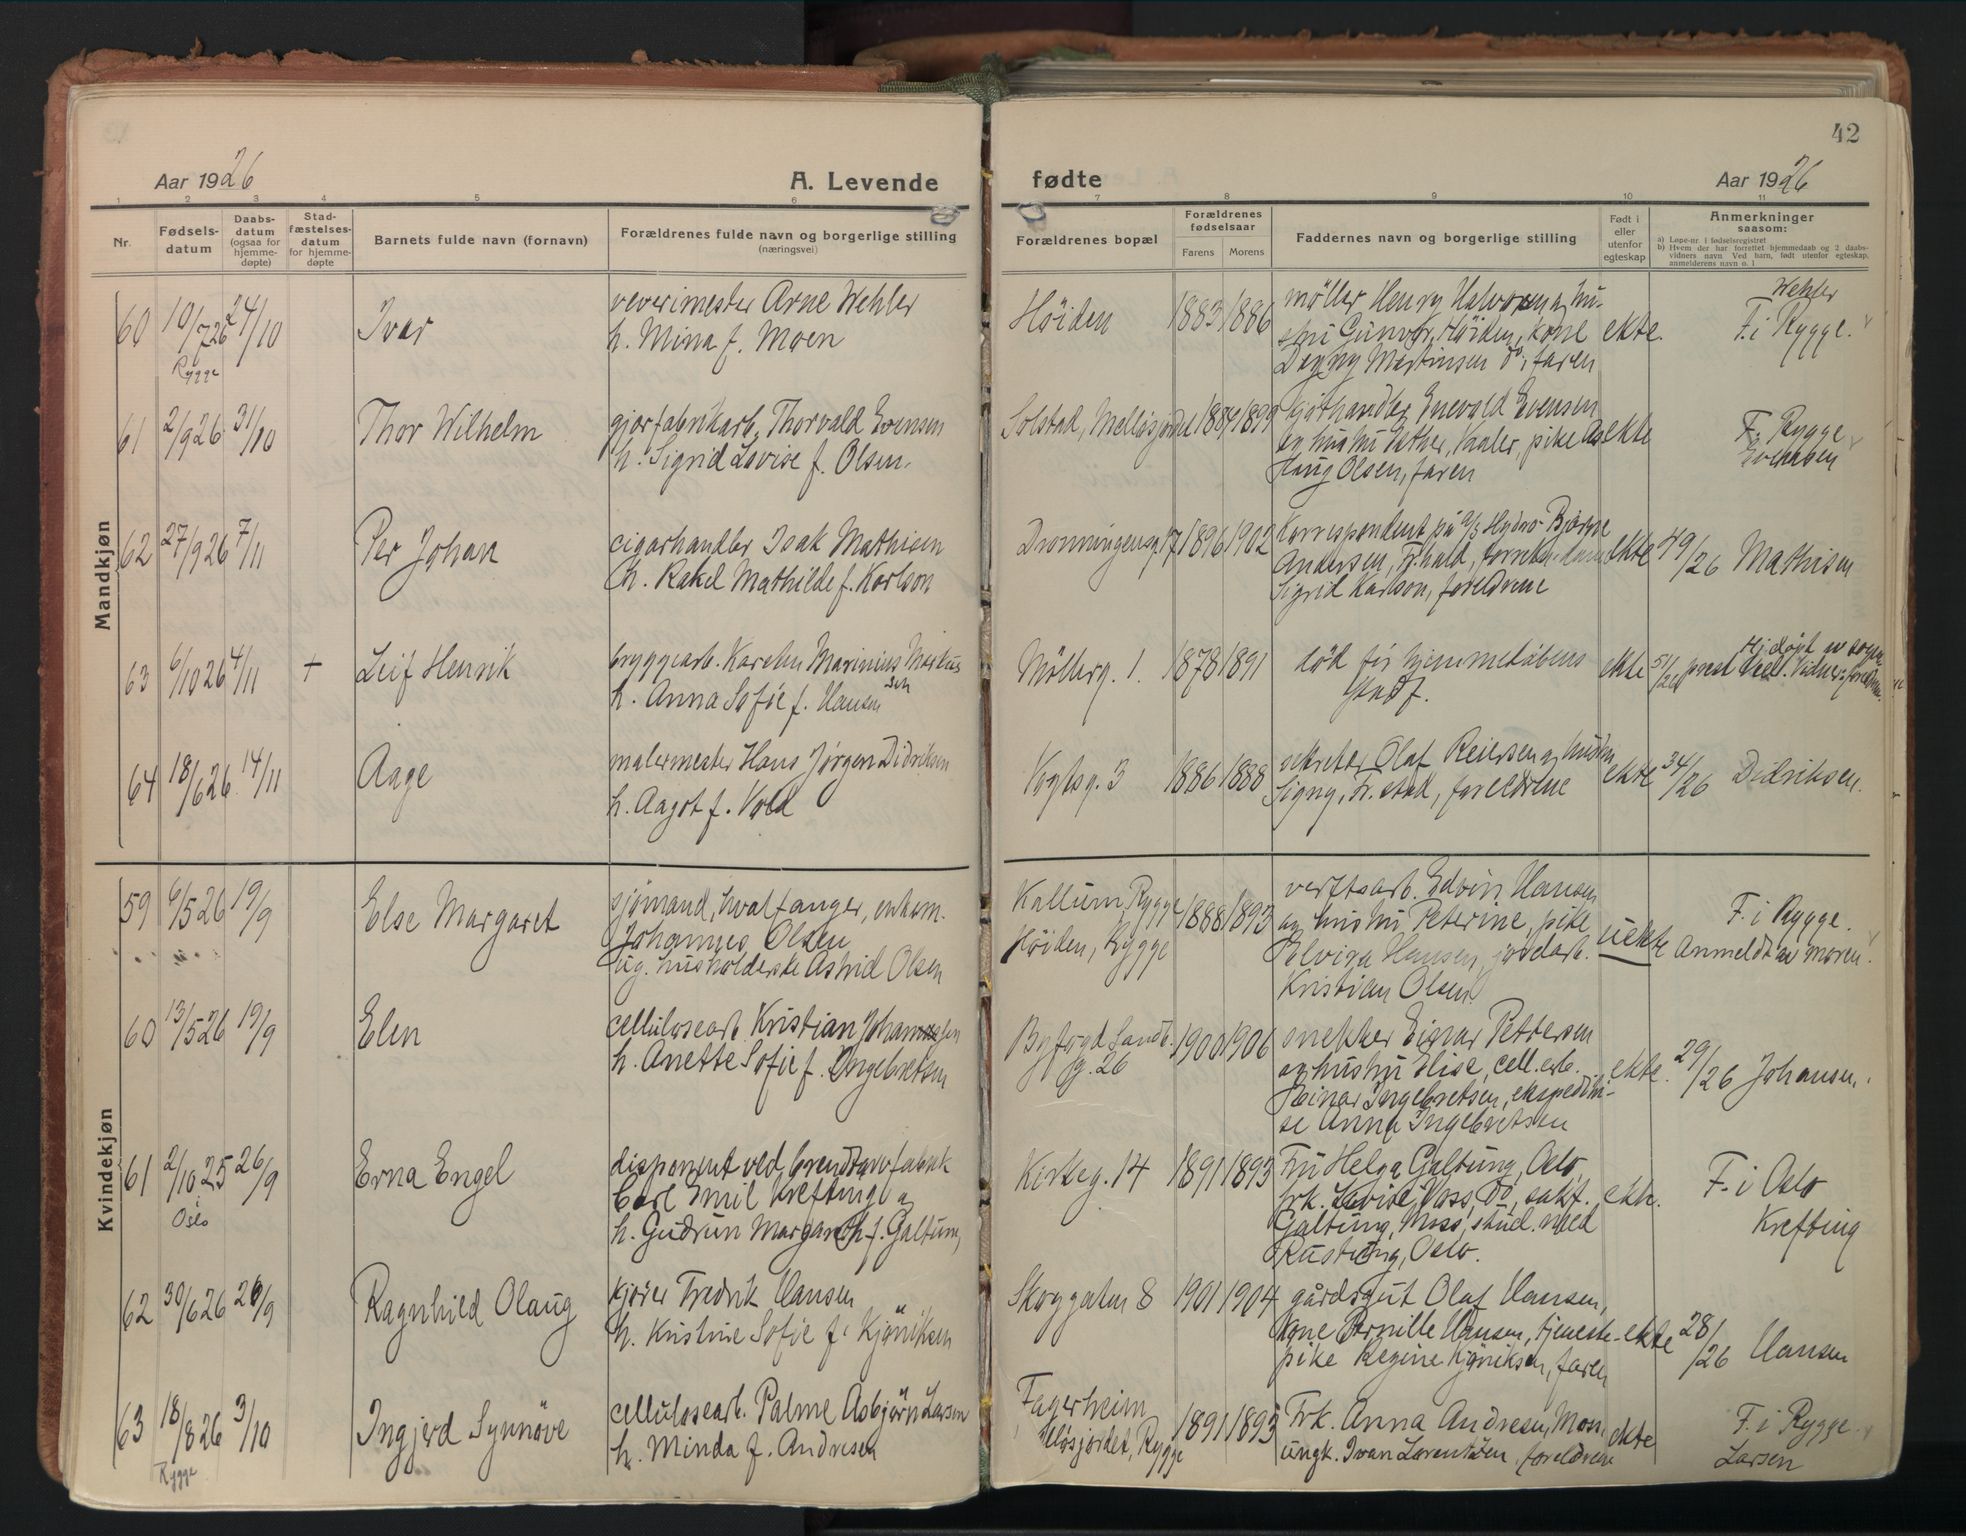 42
Aar 1926
A. Levende
fødte
Aar 1926
1 2 3 4 5 6 7 8 9 10 11
Nr.
Fødsels-
datum
Daabs-
datum
(ogsaa for
hjemme-
døpte)
Stad-
fæstelses-
datum
for hjemme-
døpte
Barnets fulde navn (fornavn)
Forældrenes fulde navn og borgerlige stilling
(næringsvei)
Forældrenes bopæl
Forældrenes
fødselsaar
Farens Morens
Faddernes navn og borgerlige stilling
Født i
eller
utenfor
egteskap
Anmerkninger
saasom:
a) Løpe-nr. i fødselsregistret
b) Hvem der har forrettet hjemmedaab og 2 daabs-
vidners navn Ved barn, født utenfor egteskap,
anmelderens navn o. l
Mandkjøn
60 10/7 26 24/10
Rygge
Ivar
veverimester Arne Wehler
h. Mina f. Moen
Höiden
1883 1886
möller Henry Halvorsen og hu-
stru Gunvor, Höiden, kone
Dagny Martinsen do, faren
ekte.
Wehler
F. i Rygge.
61 2/9 26 31/10
Thor Wilhelm
gjørfabrikarb. Thorvald Evensen
h. Sigrid Lovise f. Olsen.
Solstad, Mellösjordet
1884 1899
Enevald Evensen
og hustru Esther, Vaaler, pike Aas-
Haug Olsen, faren
ekte
F. Rygge
Evensen
62 27/9 26 7/11
Per Johan
cigarhandler Isak Mathisen
h. Rakel Mathilde f. Karlson
Dronningensg. 17
1896 1902
Korrespondent på A/S Hydro Bjarne
Andersen, Fr.hald,
Sigrid Karlson, foreldrene
ekte
49/26 Mathisen
63 6/10 26 4/11 +
Leif Henrik
bryggearb. Karelen Marinius Markus-
sen
h. Anna Sofie f. Hansen
Möllerg. 1.
1878 1891
död för hjemmedåbens
stadf.
ekte
51/26 Hj.döpt av sogne-
prest Vidner: foreldrene.
64 18/6 26 14/11
Aage
malermester Hans Jørgen Didriksen
h. Aagot f. Vold
Vogtsg. 3
1886 1888
sekretær Olaf Reiersen og hustru
Signy, Fr.stad, foreldrene
ekte
34/26 Didriksen.
Kvindekjøn
59 6/5 26 19/9
Else Margaret
sjömand, hvalfanger, enkem.
Johannes Olsen
ug. husholderske Astrid Olsen
Kallum, Rygge
Höiden, Rygge
1888 1893
verftsarb. Edvin Hansen
og hustru Peterine, pike
Elvira Hansen, jordarb.
Kristian Olsen
uekte
F. i Rygge.
Anmeldt av moren.
60 13/5 26 19/9
Elen
cellulosearb. Kristian Johansen
h. Anette Sofie f. Ingebretsen
Byfogd Sandb.
g. 26
1900 1906
snekker Einar Pettersen
og hustru Elise, cell.arb.
Einar Ingebretsen, ekspeditri-
se Anna Ingebretsen
ekte.
29/26 Johansen.
61 2/10 25 26/9
Oslo
Erna Engel
disponent ved brendtorvfabrik
Carl Emil Krefting og
h. Gudrun Margareth f. Galtung
Kirkeg. 14
1891 1893
Fru Helga Galtung, Oslo,
frk. Lovise Voss, do, sakf.
Galtung, Moss, stud. med
Rustung, Oslo.
ekte.
F. i Oslo
Krefting
62 30/6 26 26/9
Ragnhild Olaug
kjörer Fredrik Hansen
h. Kristine Sofie f. Kjöniksen
Skoggaten 8
1901 1904
gårdsgut Olaf Hansen,
kone Pernille Hansen, tjeneste-
pike Regine Kjöniksen, faren
ekte
28/26 Hansen
63 18/8 26 3/10
Rygge
Ingjerd Synnöve
cellulosearb. Palme Asbjörn Larsen
h. Minda f. Andresen
Fagerheim
Mösjordet, Rygge
1891 1893
Frk. Anna Andresen, Moss,
ungk. Ivan Lorentzen, foreldrene
ekte
F. i Rygge
Larsen